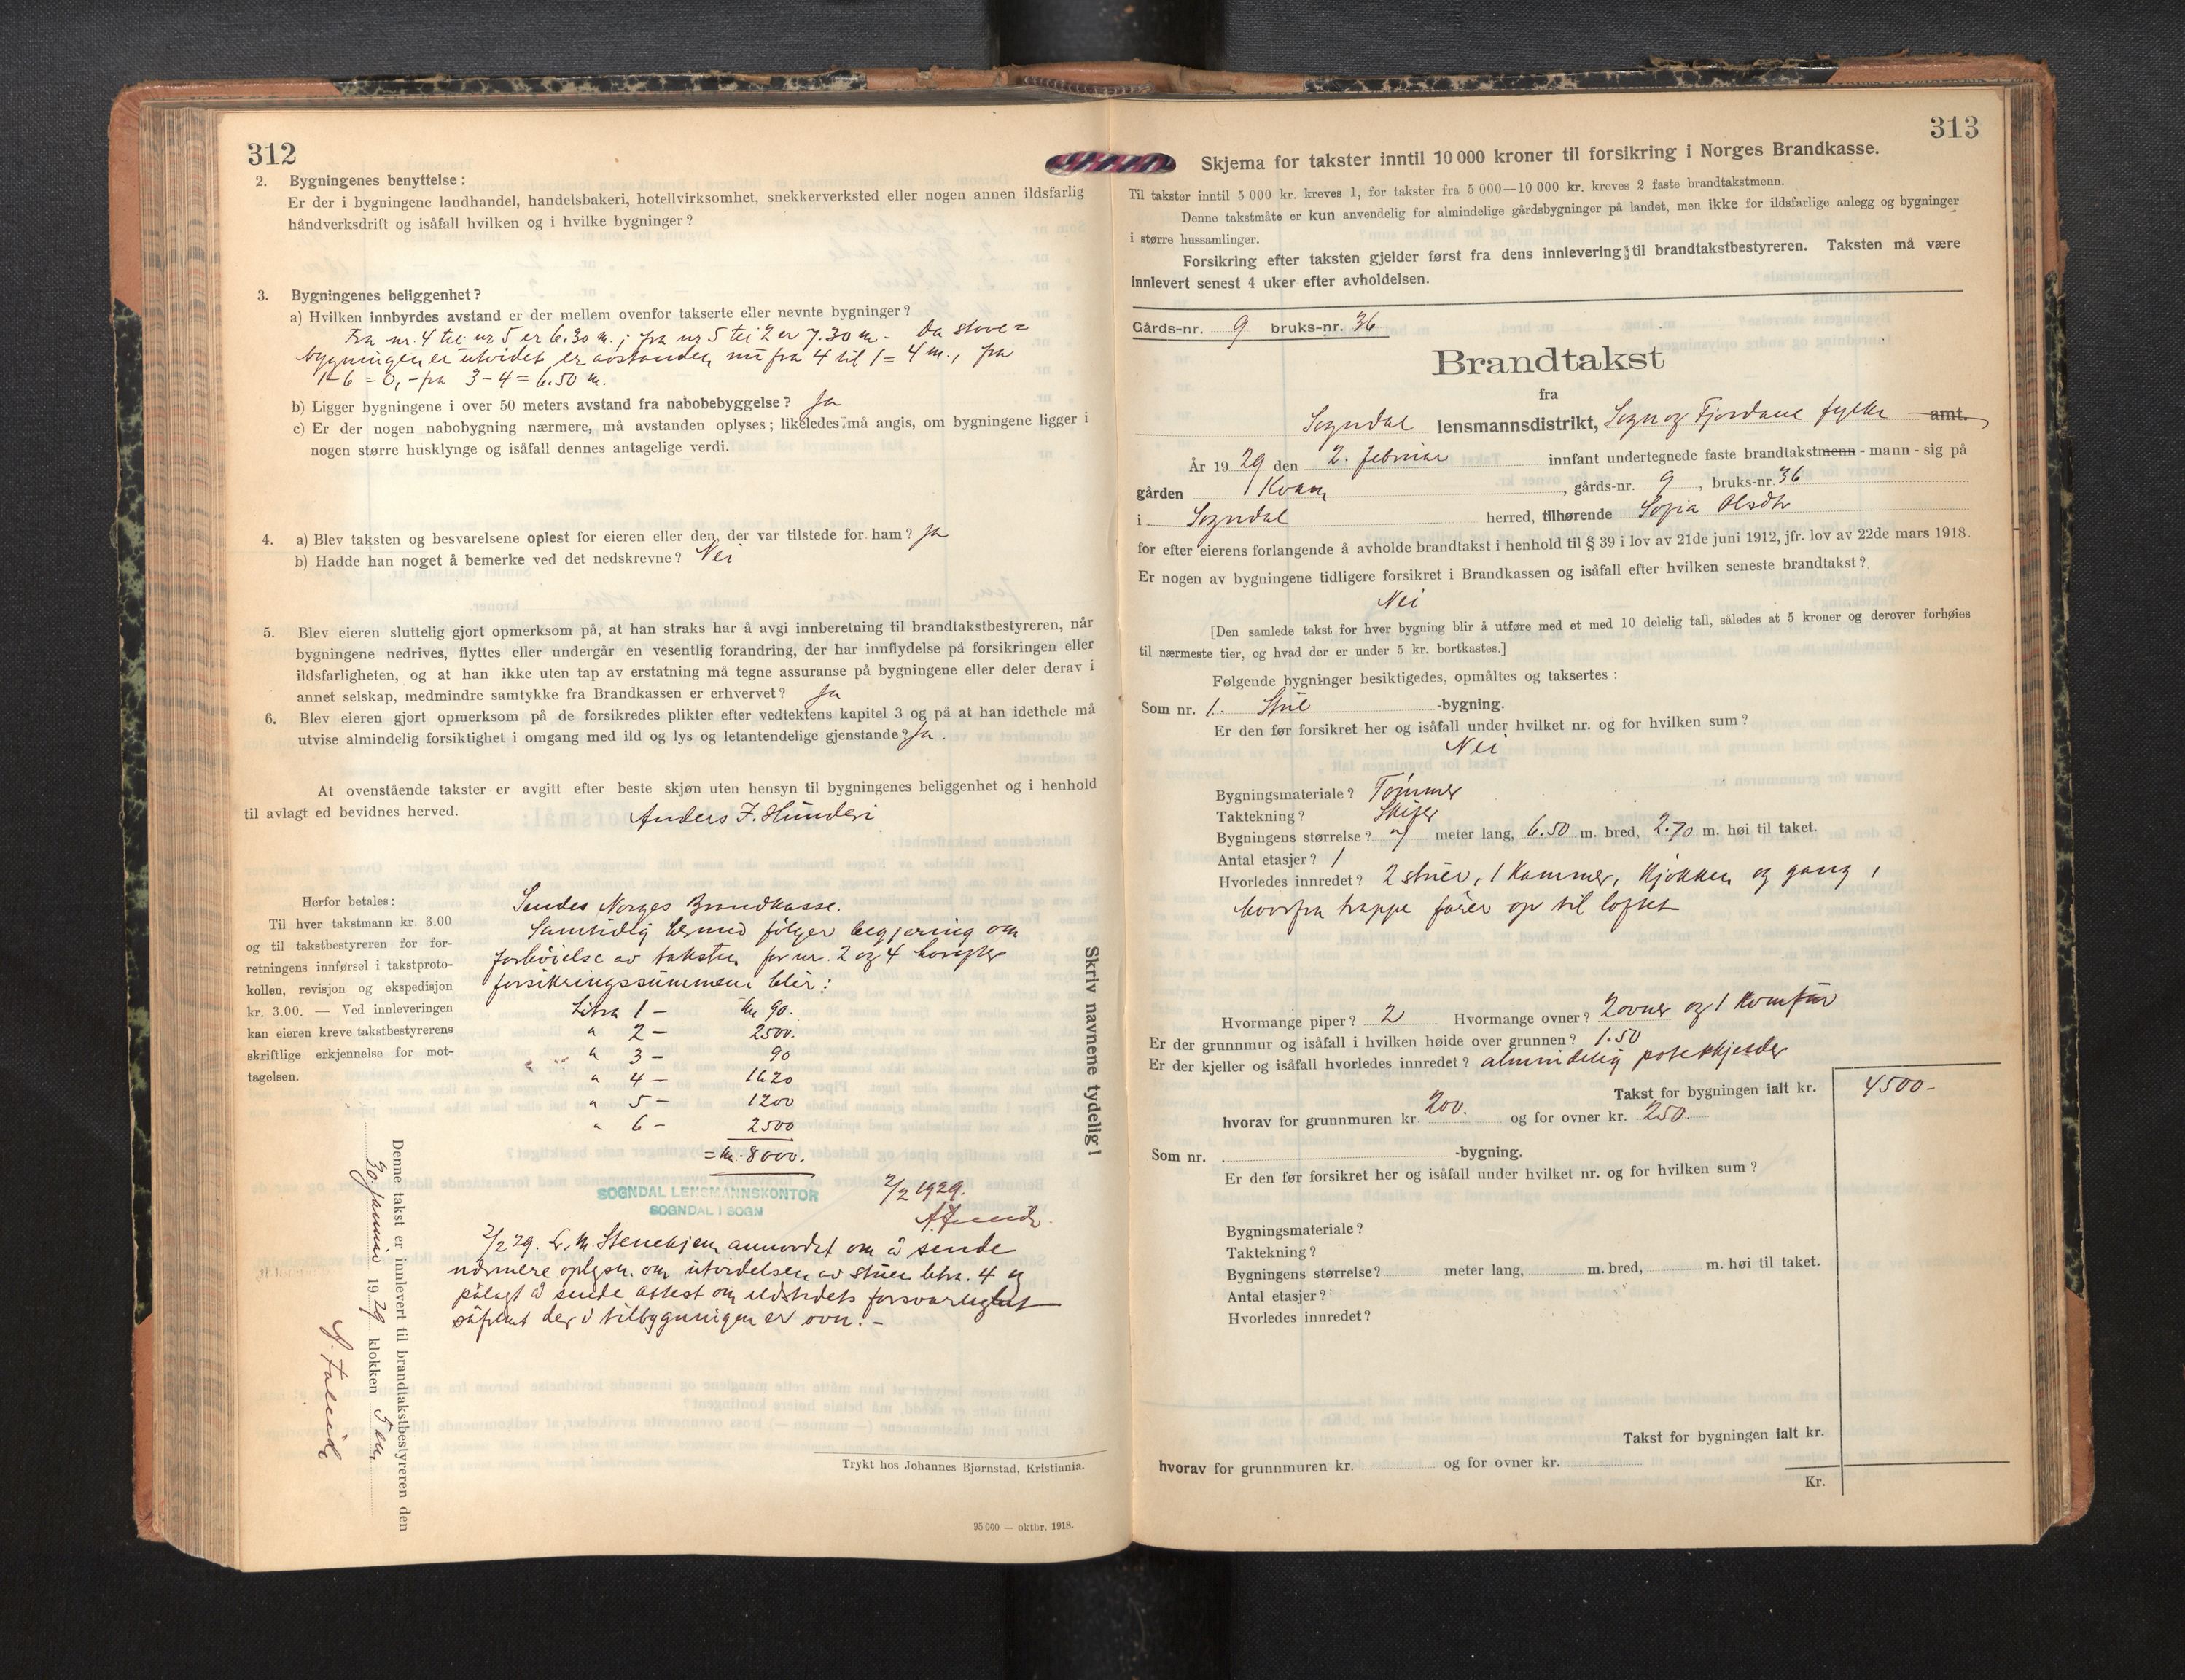 312
2. Bygningenes benyttelse:
Er der i bygningene landhandel, handelsbakeri, hotellvirksomhet, snekkerverksted eller nogen annen ildsfarlig
håndverksdrift og isåfall hvilken og i hvilke bygninger?
3. Bygningenes beliggenhet?
a) Hvilken innbyrdes avstand er der mellem ovenfor takserte eller nevnte bygninger?
Fra nr. 4 til nr 5 er 6.30 m; fra nr 5 til 2 er 7.30 m - Da stove=
bygningen er utvidet er avstanden nu fra 4 til 1 = 4 m., fra
1-6 = 8, - fra 3-4 = 6.50 m.
b) Ligger bygningene i over 50 meters avstand fra nabobebyggelse? Ja
c) Er der nogen nabobygning nærmere, må avstanden oplyses; likeledes må angis, om bygningene ligger i
nogen større husklynge og isåfall dennes antagelige verdi.
4. a) Blev taksten og besvarelsene oplest for eieren eller den, der var tilstede for ham? Ja
b) Hadde han noget å bemerke ved det nedskrevne? Nei
5. Blev eieren sluttelig gjort opmerksom på, at han straks har å avgi innberetning til brandtakstbestyreren, når
bygningene nedrives, flyttes eller undergår en vesentlig forandring, der har innflydelse på forsikringen eller
ildsfarligheten, og at han ikke uten tap av erstatning må tegne assuranse på bygningene eller deler derav i
annet selskap, medmindre samtykke fra Brandkassen er erhvervet? Ja
6. Blev eieren gjort opmerksom på de forsikredes plikter efter vedtektens kapitel 3 og på at han idethele må
utvise almindelig forsiktighet i omgang med ild og lys og letantendelige gjenstande? Ja.
At ovenstående takster er avgitt efter beste skjøn uten hensyn til bygningenes beliggenhet og i henhold
til avlagt ed bevidnes herved.
Anders J. Hunderi
Herfor betales:
Til hver takstmann kr. 3.00
og til takstbestyreren for for-
retningens innførsel i takstproto-
kollen, revisjon og ekspedisjon
kr. 3.00. — Ved innleveringen
kan eieren kreve takstbestyrerens
skriftlige erkjennelse for mot-
tagelsen.
Sendes Norges Brandkasse.
Samtidig hermed følger begjering om
forhøielse av taksten for nr. 2 og 4 hvorefter
forsikringssummene blir:
Litra 1 - kr 90.
" 2 - 2500.
" 3 - 90
" 4 - 1620
" 5 - 1200
" 6 - 2500
= kr. 8000.
2/2 1929.
SOGNDAL LENSMANNSKONTOR
SOGNDAL I SOGN
2/2 29. L. M. Stenehjem anmodet om å sende
nærmere oplysn. om utvidelsen av stuen litra. 4 og
pålagt å sende attest om ildstedets forsvarlighet
såfremt der i tilbygningen er ovn. -
Skriv navnene tydelig!
Denne takst er innlevert til brandtakstbestyreren den
30 januar 1929 klokken Fem
Trykt hos Johannes Bjørnstad, Kristiania.
95 000 — oktbr. 1918.
313
Skjema for takster inntil 10 000 kroner til forsikring i Norges Brandkasse.
Til takster inntil 5 000 kr. kreves 1, for takster fra 5 000—10 000 kr. kreves 2 faste brandtakstmenn.
Denne takstmåte er kun anvendelig for almindelige gårdsbygninger på landet, men ikke for ildsfarlige anlegg og bygninger
i større hussamlinger.
Forsikring efter taksten gjelder først fra dens innlevering til brandtakstbestyreren. Taksten må være
innlevert senest 4 uker efter avholdelsen.
Gårds-nr. 9 bruks-nr. 36
Brandtakst
fra
Sogndal lensmannsdistrikt, Sogn og Fjordane fylke amt.
År 1929 den 2. februar innfant undertegnede faste brandtakstmenn - mann - sig på
gården Kvam, gårds-nr. 9, bruks-nr. 36
i Sogndal herred, tilhørende Sofia Olsdtr
for efter eierens forlangende å avholde brandtakst i henhold til § 39 i lov av 21de juni 1912, jfr. lov av 22de mars 1918.
Er nogen av bygningene tidligere forsikret i Brandkassen og isåfall efter hvilken seneste brandtakst?
Nei
[Den samlede takst for hver bygning blir å utføre med et med 10 delelig tall, således at 5 kroner og derover forhøies
til nærmeste tier, og hvad der er under 5 kr. bortkastes.]
Følgende bygninger besiktigedes, opmåltes og taksertes:
Som nr. 1. Stue -bygning.
Er den før forsikret her og isåfall under hvilket nr. og for hvilken sum?
Nei
Bygningsmateriale? Tømmer
Taktekning? Skifer
Bygningens størrelse? 9 meter lang, 6.50 m. bred, 2.70 m. høi til taket.
Antal etasjer? 1
Hvorledes innredet? 2 stuer, 1 Kammer, Kjøkken og gang,
hvorfra trappe fører op til loftet
Hvormange piper? 2 Hvormange ovner? 2 ovner og 1 Komfur
Er der grunnmur og isåfall i hvilken høide over grunnen? 1.50
Er der kjeller og isåfall hvorledes innredet? almindelig potetkjelder
Takst for bygningen ialt kr. 4500-
hvorav for grunnmuren kr. 200. og for ovner kr. 250.
Som nr. -bygning.
Er den før forsikret her og isåfall under hvilket nr. og for hvilken sum?
Bygningsmateriale?
Taktekning?
Bygningens størrelse? meter lang, m. bred, m. høi til taket.
Antal etasjer?
Hvorledes innredet?
Takst for bygningen ialt kr.
hvorav for grunnmuren kr. og for ovner kr.
Kr.